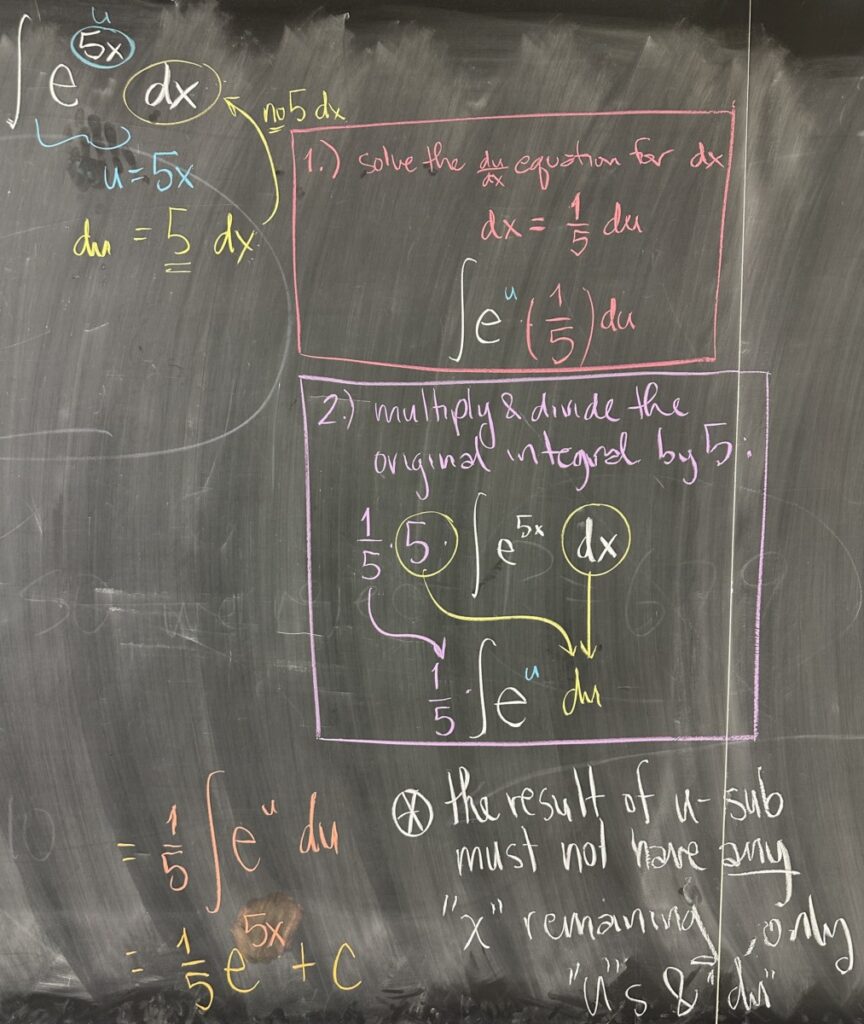 ∫ e^(5x) dx
u
no 5 dx
u = 5x
du = 5 dx
1.) solve the du/dx equation for dx
dx = 1/5 du
∫ e^u · (1/5) du
2.) multiply & divide the
original integral by 5:
1/5 · 5 · ∫ e^(5x) dx
1/5 · ∫ e^u du
= 1/5 ∫ e^u du
= 1/5 e^(5x) + C
⊛ the result of u-sub
must not have any
"x" remaining, only
"u"s & "du"